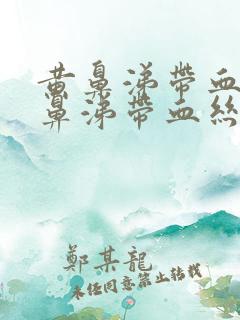 黄鼻涕帶血
鼻涕帶血絲
鄭某龍
未经同意禁止转载